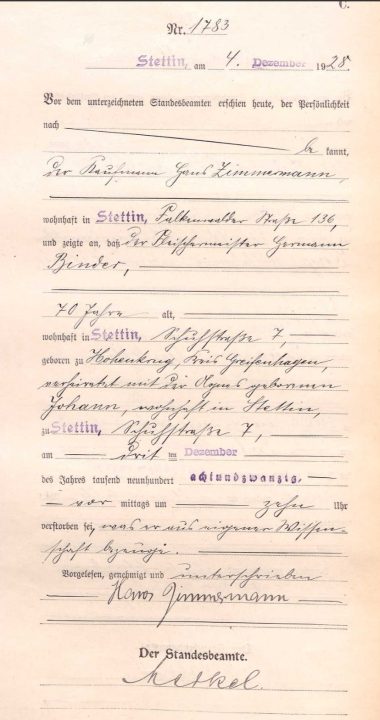 C.
Nr. 1783
Stettin, am 4. Dezember 1928.
Vor dem unterzeichneten Standesbeamten erschien heute, der Persönlichkeit
nach be kannt,
der Kaufmann Hans Zimmermann,
wohnhaft in Stettin, Falkenwalder Straße 136,
und zeigte an, daß der Fleischermeister Hermann
Binder,
70 Jahre alt,
wohnhaft in Stettin, Schuhstraße 7,
geboren zu Hohenkrug, Kreis Greifenhagen,
verheiratet mit der Agnes geborenen
Johann, wohnhaft in Stettin,
zu Stettin, Schuhstraße 7,
am drit ten Dezember
des Jahres tausend neunhundert achtundzwanzig,
vor mittags um zehn Uhr
verstorben sei, was er aus eigener Wissen-
schaft bezeuge.
Vorgelesen, genehmigt und unterschrieben
Hans Zimmermann
Der Standesbeamte.